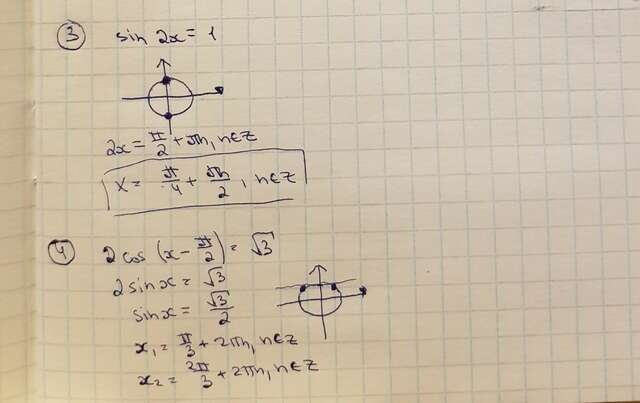 3 sin 2x = 1
2x = π/2 + πn, n∈Z
x = π/4 + πn/2, n∈Z
4 2cos (x - π/2) = √3
2 sin x = √3
sin x = √3/2
x₁ = π/3 + 2πn, n∈Z
x₂ = 2π/3 + 2πn, n∈Z